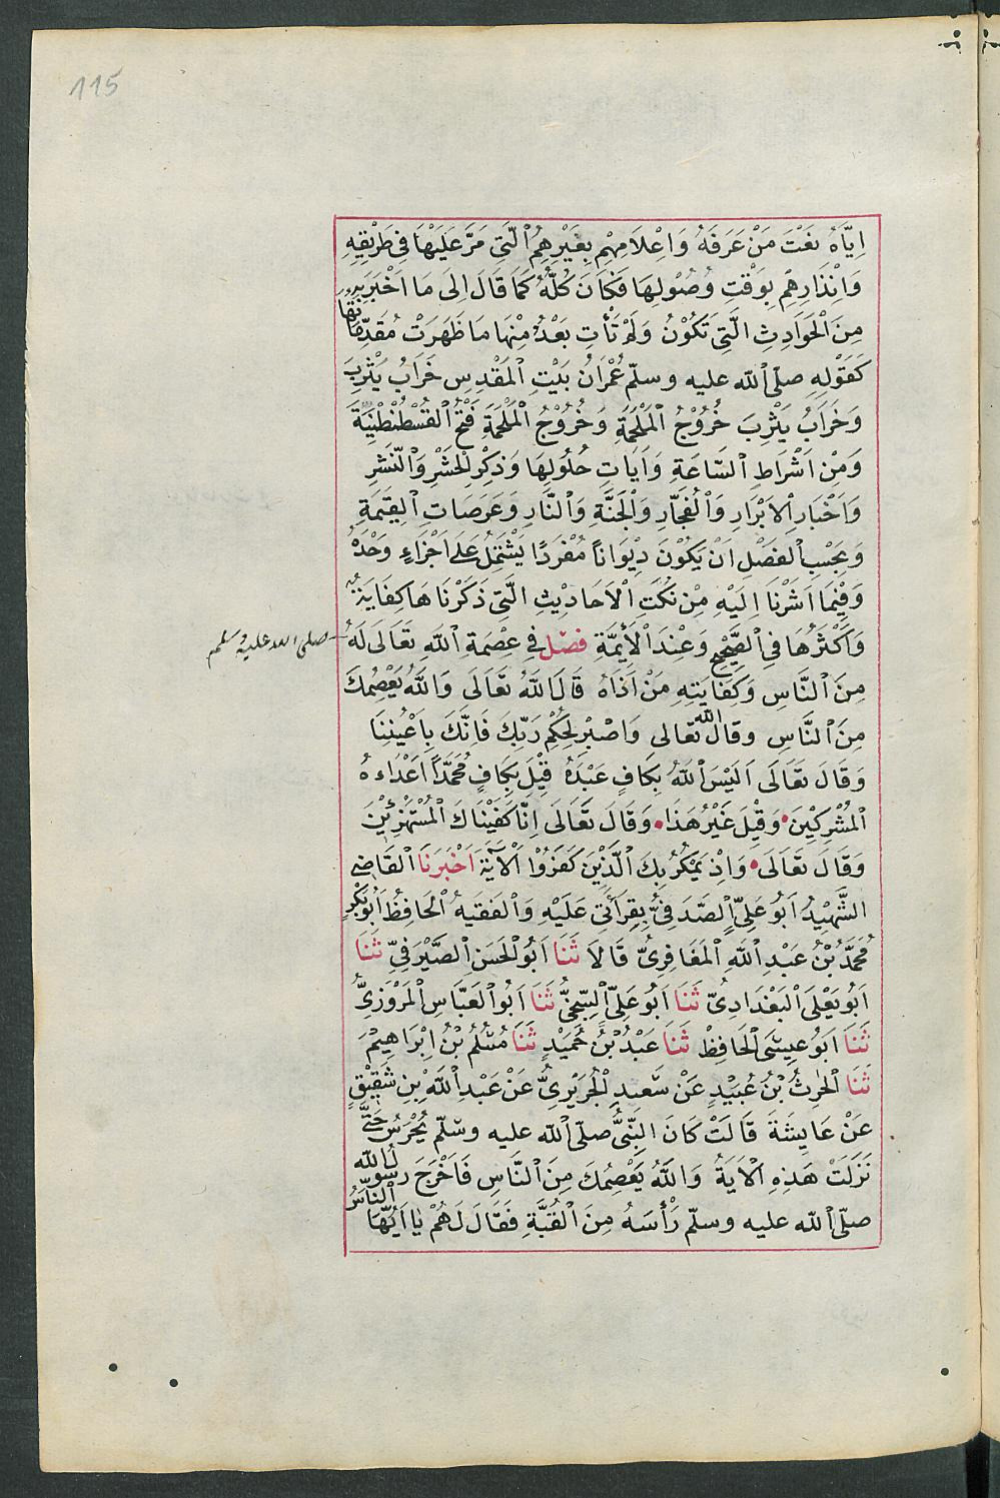 115
اِيَّاهُ نَعْتَ مَنْ عَرَفَهُ وَاِعْلَامِهِمْ بِعِيْرِهِمُ الَّتِى مَرَّ عَلَيْهَا فِى طَرِيْقِهِ
وَاِنْذَارِهِمْ بِوَقْتِ وُصُوْلِهَا فَكَانَ كُلُّهُ كَمَا قَالَ اِلَى مَا اَخْبَرَ بِهِ
مِنَ الْحَوَادِثِ الَّتِى تَكُوْنُ وَلَمْ تَأْتِ بَعْدُ مِنْهَا مَا ظَهَرَتْ مُقَدِّمَاتُهَا
كَقَوْلِهِ صلّى الله عليه وسلّم عُمْرَانُ بَيْتِ الْمَقْدِسِ خَرَابُ يَثْرِبَ
وَخَرَابُ يَثْرِبَ خُرُوْجُ الْمَلْحَمَةِ وَخُرُوْجُ الْمَلْحَمَةِ فَتْحُ الْقُسْطُنْطِنِيَّةَ
وَمِنْ اَشْرَاطِ السَّاعَةِ وَاٰيَاتِ حُلُوْلِهَا وَذِكْرِ الْحَشْرِ وَالنَّشْرِ
وَاَخْبَارِ الْاَبْرَارِ وَالْفُجَّارِ وَالْجَنَّةِ وَالنَّارِ وَعَرَصَاتِ الْقِيٰمَةِ
وَبِحَسْبِ الفَصْلِ اَنْ يَكُوْنَ دِيْوَانًا مُفْرَدًا يَشْتَمِلُ عَلَى اَجْزَاءٍ وَحْدَهُ
وَفِيْمَا اَشَرْنَا اِلَيْهِ مِنْ نُكَتِ الْاَحَادِيْثِ الَّتِى ذَكَرْنَاهَا كِفَايَةٌ
وَاَكْثَرُهَا فِى الصَّحِيْحِ وَعِنْدَ الْاَئِمَّةِ فصل فِى عِصْمَةِ اللّٰهِ تَعَالَى لَهُ
صلى الله عليه وسلم
مِنَ النَّاسِ وَكِفَايَتِهِ مَنْ اَذَاهُ قَالَ اللّٰهُ تَعَالَى وَاللّٰهُ يَعْصِمُكَ
مِنَ النَّاسِ وقال الله تعالى وَاصْبِرْ لِحُكْمِ رَبِّكَ فَاِنَّكَ بِاَعْيُنِنَا
وَقَالَ تَعَالَى اَلَيْسَ اللّٰهُ بِكَافٍ عَبْدَهُ قِيْلَ بِكَافٍ مُحَمَّدًا اَعْدَاءهُ
الْمُشْرِكِيْنَ • وَقِيْلَ غَيْرُ هَذَا • وَقَالَ تَعَالَى اِنَّا كَفَيْنَاكَ الْمُسْتَهْزِئِيْنَ
وَقَالَ تَعَالَى • وَاِذْ يَمْكُرُ بِكَ الَّذِيْنَ كَفَرُوْا الْاٰيَةَ اَخْبَرَنَا القَاضِى
الشَّهِيْدُ اَبُو عَلِىٍّ الصَّدَفِىُّ بِقِرَاءَتِى عَلَيْهِ وَالفَقِيْهُ الْحَافِظُ اَبُو بَكْرٍ
مُحَمَّدُ بْنُ عَبْدِ اللّٰهِ الْمَعَافِرِىُّ قَالَا ثَنَا اَبُو الْحَسَنِ الصَّيْرَفِىُّ ثَنَا
اَبُو يَعْلَى الْبَغْدَادِىُّ ثَنَا اَبُو عَلِىٍّ السِّنْجِىُّ ثَنَا اَبُو الْعَبَّاسِ الْمَرْوَزِىُّ
ثَنَا اَبُو عِيْسَى الْحَافِظُ ثَنَا عَبْدُ بْنُ حُمَيْدٍ ثَنَا مُسْلِمُ بْنُ اِبْرَاهِيْمَ
ثَنَا الْحٰرِثُ بْنُ عُبَيْدٍ عَنْ سَعِيدٍ الْجُرَيْرِىِّ عَنْ عَبْدِ اللّٰهِ بْنِ شَقِيْقٍ
عَنْ عَايِشَةَ قَالَتْ كَانَ النَّبِىُّ صلّى الله عليه وسلّم يُحْرَسُ حَتَّى
نَزَلَتْ هَذِهِ الْاٰيَةُ وَاللّٰهُ يَعْصِمُكَ مِنَ النَّاسِ فَاَخْرَجَ رَسُولُ الله
صلّى الله عليه وسلّم رَأْسَهُ مِنَ الْقُبَّةِ فَقَالَ لَهُمْ يٰا اَيُّهَا النَّاسُ